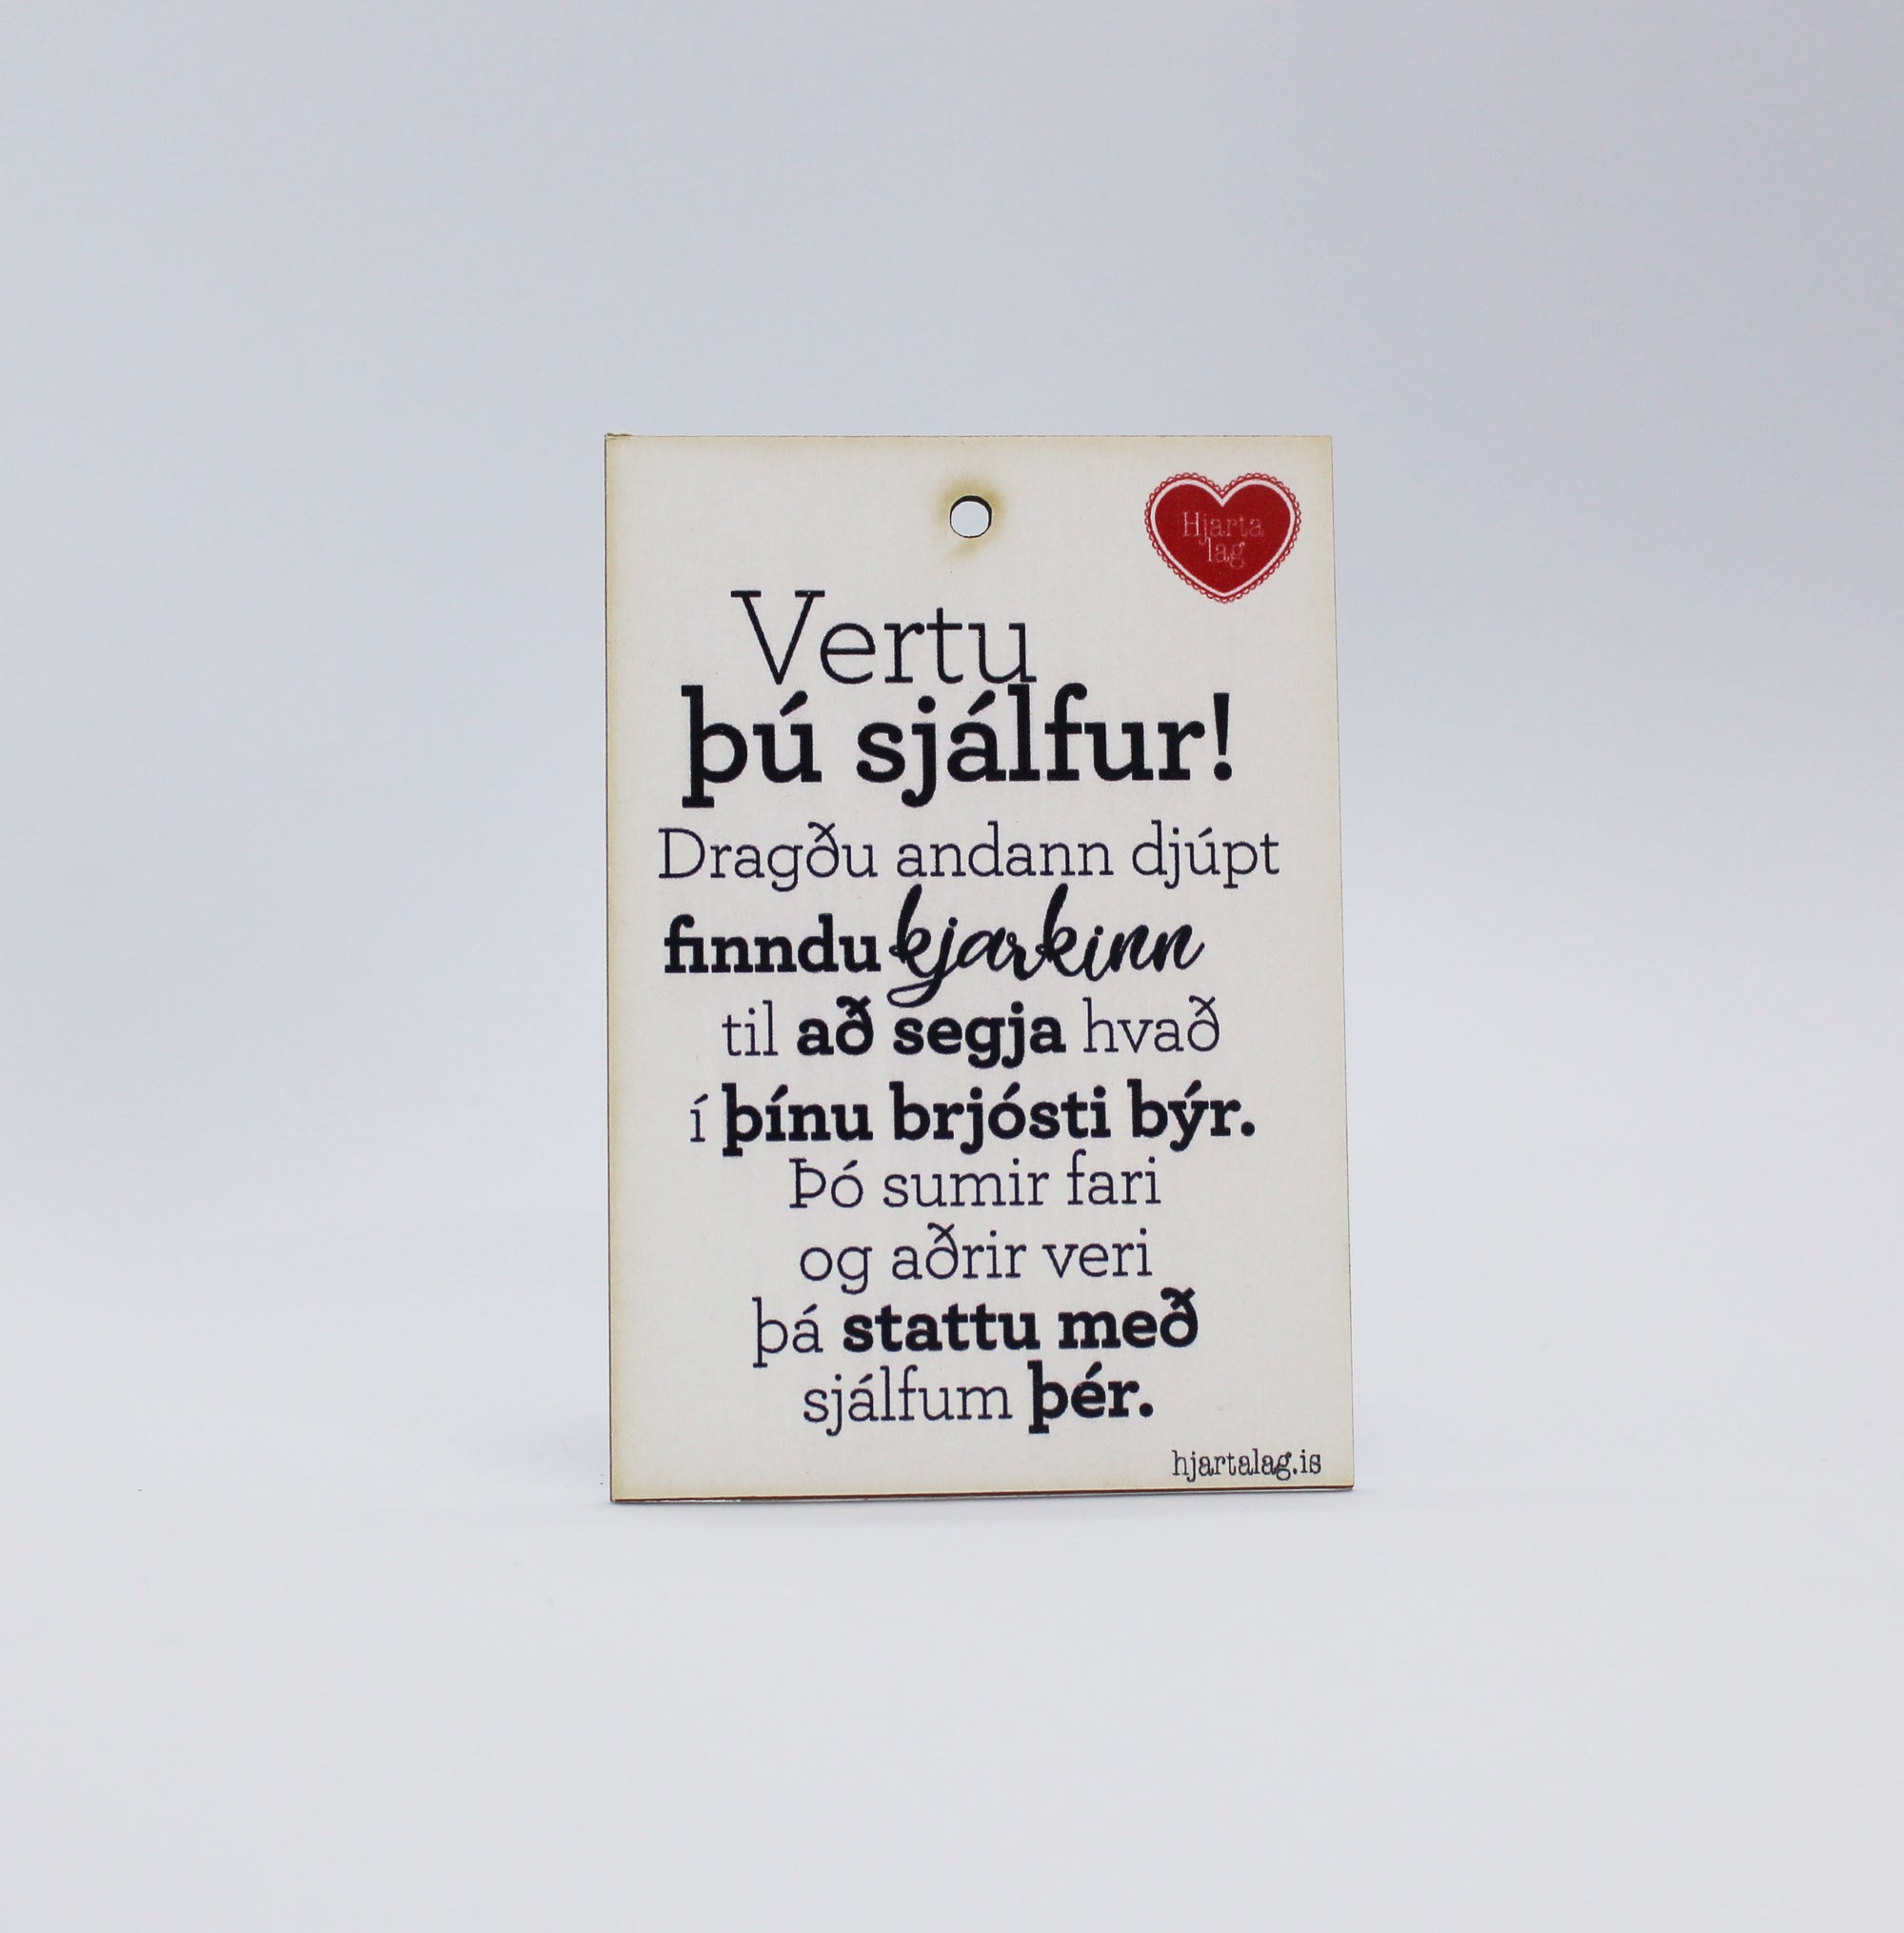 Hjarta
lag
Vertu
þú sjálfur!
Dragðu andann djúpt
finndu kjarkinn
til að segja hvað
í þínu brjósti býr.
Þó sumir fari
og aðrir veri
þá stattu með
sjálfum þér.
hjartalag.is